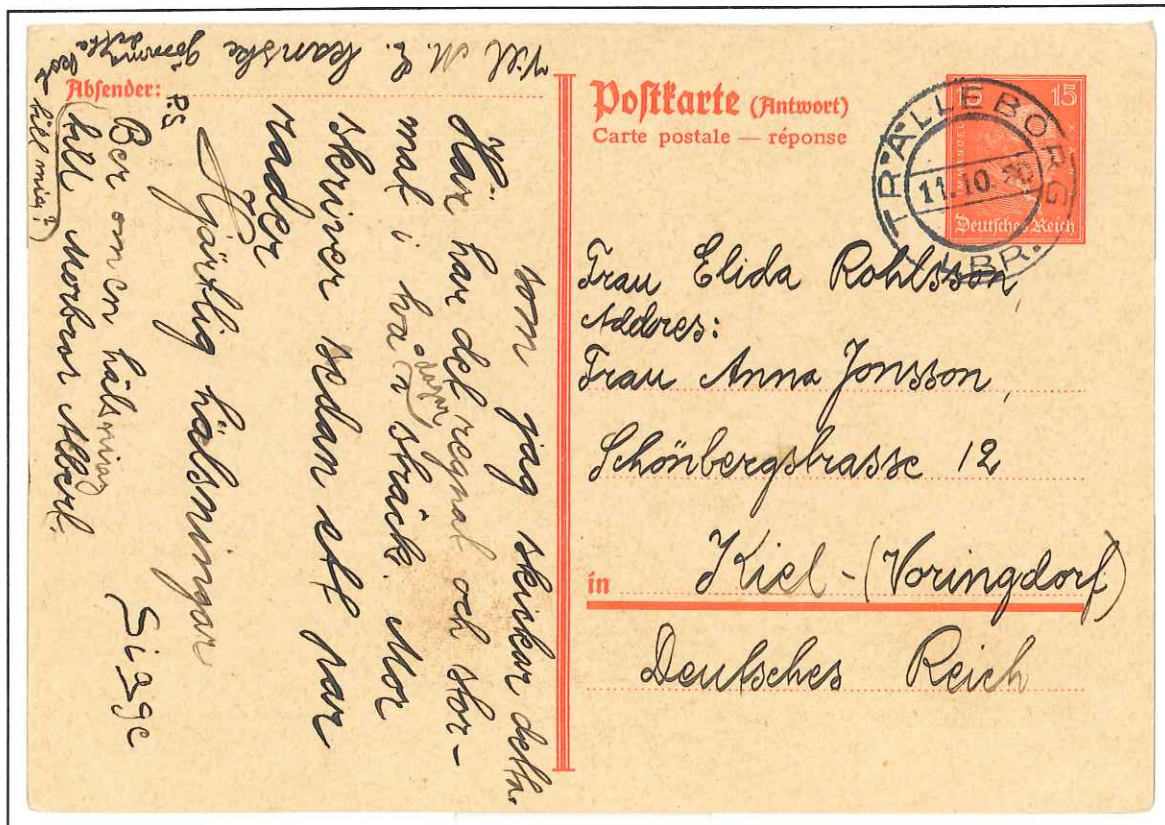 Absender:
Postkarte (Antwort)
Carte postale — réponse
15 15
IMMANUEL KANT
Deutsches Reich
TRÄLLEBORG
11.10.
LBR.
Frau Elida Rohlsson,
Addres:
Frau Anna Jonsson,
Schönbergstrasse 12
in Kiel-(Voringdorf)
Deutsches Reich
som jag skickar detta.
Här har det regnat och stor-
mat i två dagar i sträck. Mor
skriver sedan ett par
rader
Hjärtlig hälsningar
Sigge
P.S
Ber om en hälsning
till Morbror Albert.
Vill M. E. kanske gömma detta kort
till mig?